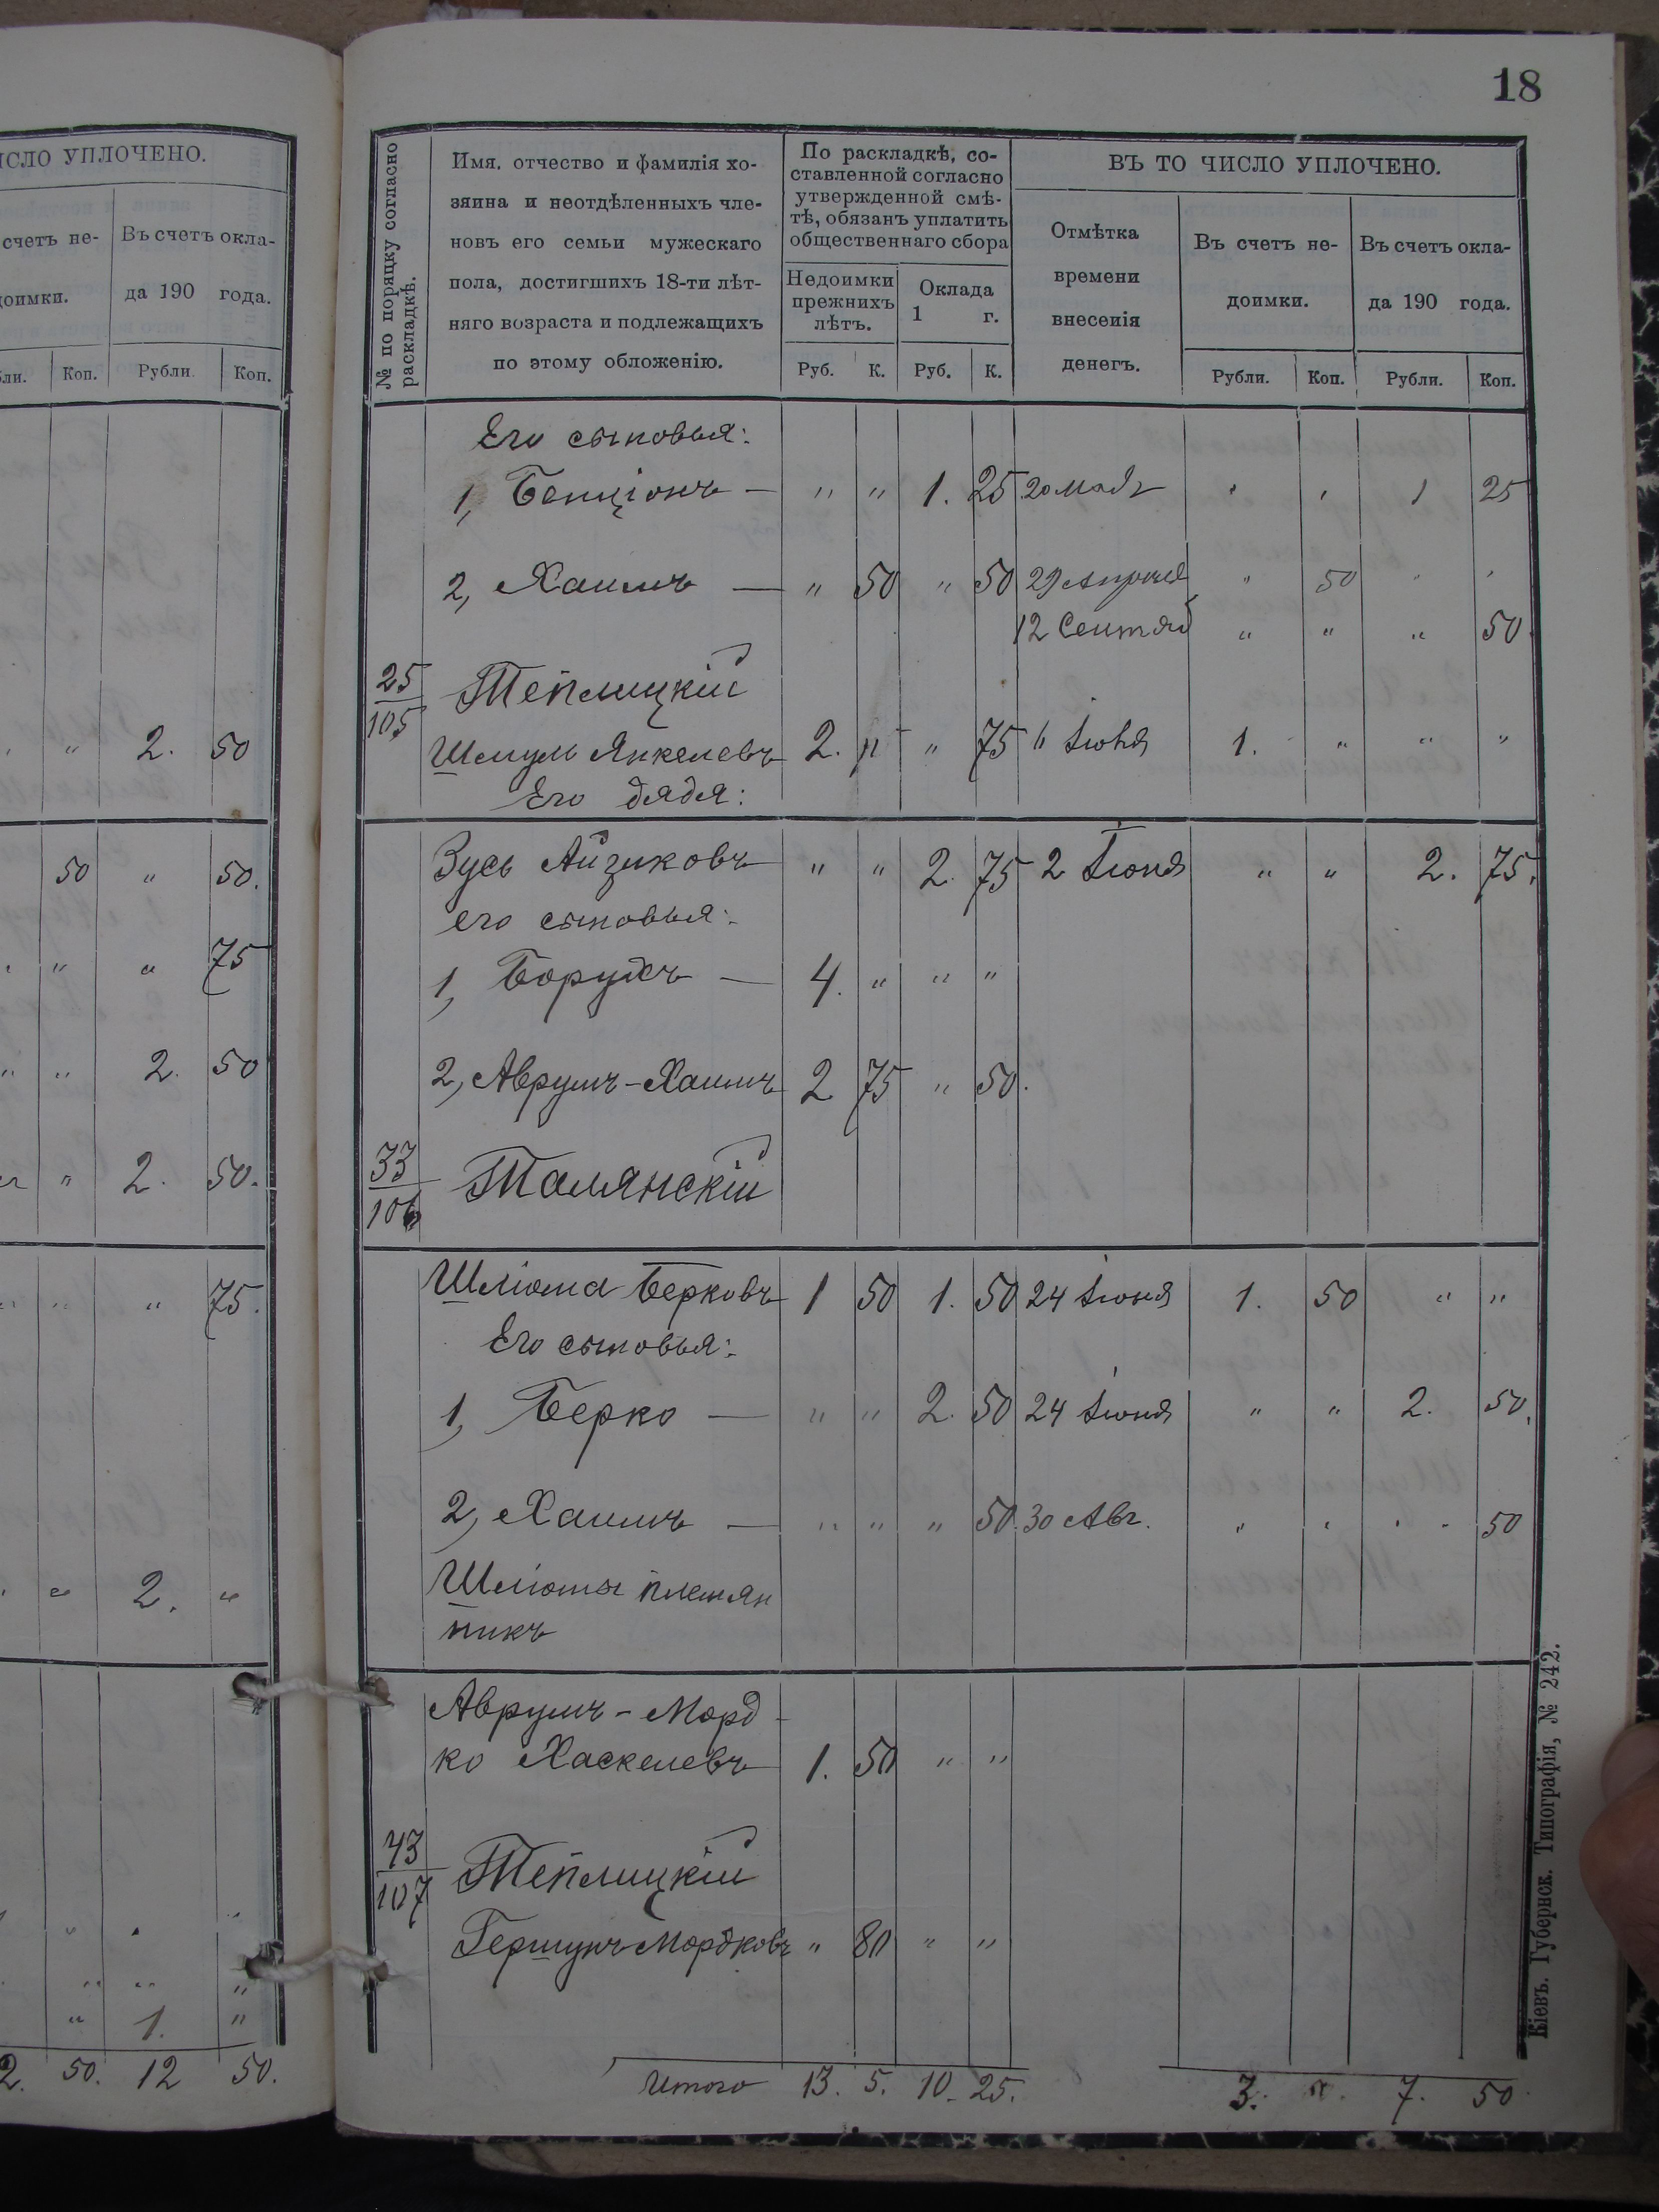 ИСЛО УПЛОЧЕНО.
счетъ не-
доимки.
Въ счетъ окла-
да 190 года.
Коп. Рубли. Коп.
" 2. 50
50 " 50.
" " 75
" " 2. 50
" 2. 50.
" " " 75.
" 2. "
" 1. "
2. 50. 12 50.
18
№ по поряцку согласно
раскладкѣ.
Имя. отчество и фамилія хо-
зяина и неотдѣленныхъ чле-
новъ его семьи мужескаго
пола, достигшихъ 18-ти лѣт-
няго возраста и подлежащихъ
по этому обложенію.
По раскладкѣ, со-
ставленной согласно
утвержденной смѣ-
тѣ, обязанъ уплатить
общественнаго сбора
Недоимки
прежнихъ
лѣтъ.
Оклада
1 г.
Руб. К. Руб. К.
Отмѣтка
времени
внесенія
денегъ.
ВЪ ТО ЧИСЛО УПЛОЧЕНО.
Въ счетъ не-
доимки.
Въ счетъ окла-
да 190 года.
Рубли. Коп. Рубли. Коп.
Его сыновья:
1, Бенціонъ — " " 1. 25 20 мая " " 1 25
2, Хаимъ — " 50 " 50 29 Апреля " 50 " "
12 Сентяб " " " 50.
25/105 Теплицкій
Шмуль Янкелевъ 2. " " 75 11 Іюня 1. " " "
Его дядя:
Зусь Айзиковъ " " 2. 75 2 Іюня " " 2. 75.
его сыновья:
1, Борухъ — 4. " " "
2, Аврумъ-Хаимъ 2 75 " 50.
33/106 Талянскій
Шліома Берковъ 1 50 1. 50 24 Іюня 1. 50 " "
Его сыновья:
1, Берко — " " 2. 50 24 Іюня " " 2. 50.
2, Хаимъ — " " " 50. 30 Авг. " " " 50
Шліомы племян
никъ
Аврумъ-Морд-
ко Хаскелевъ 1. 50 " "
43/107 Теплицкій
Гершунъ Мордковъ " 80 " "
Итого 13. 5. 10. 25. 3. " 7. 50
Кіевъ. Губернск. Типографія, № 242.